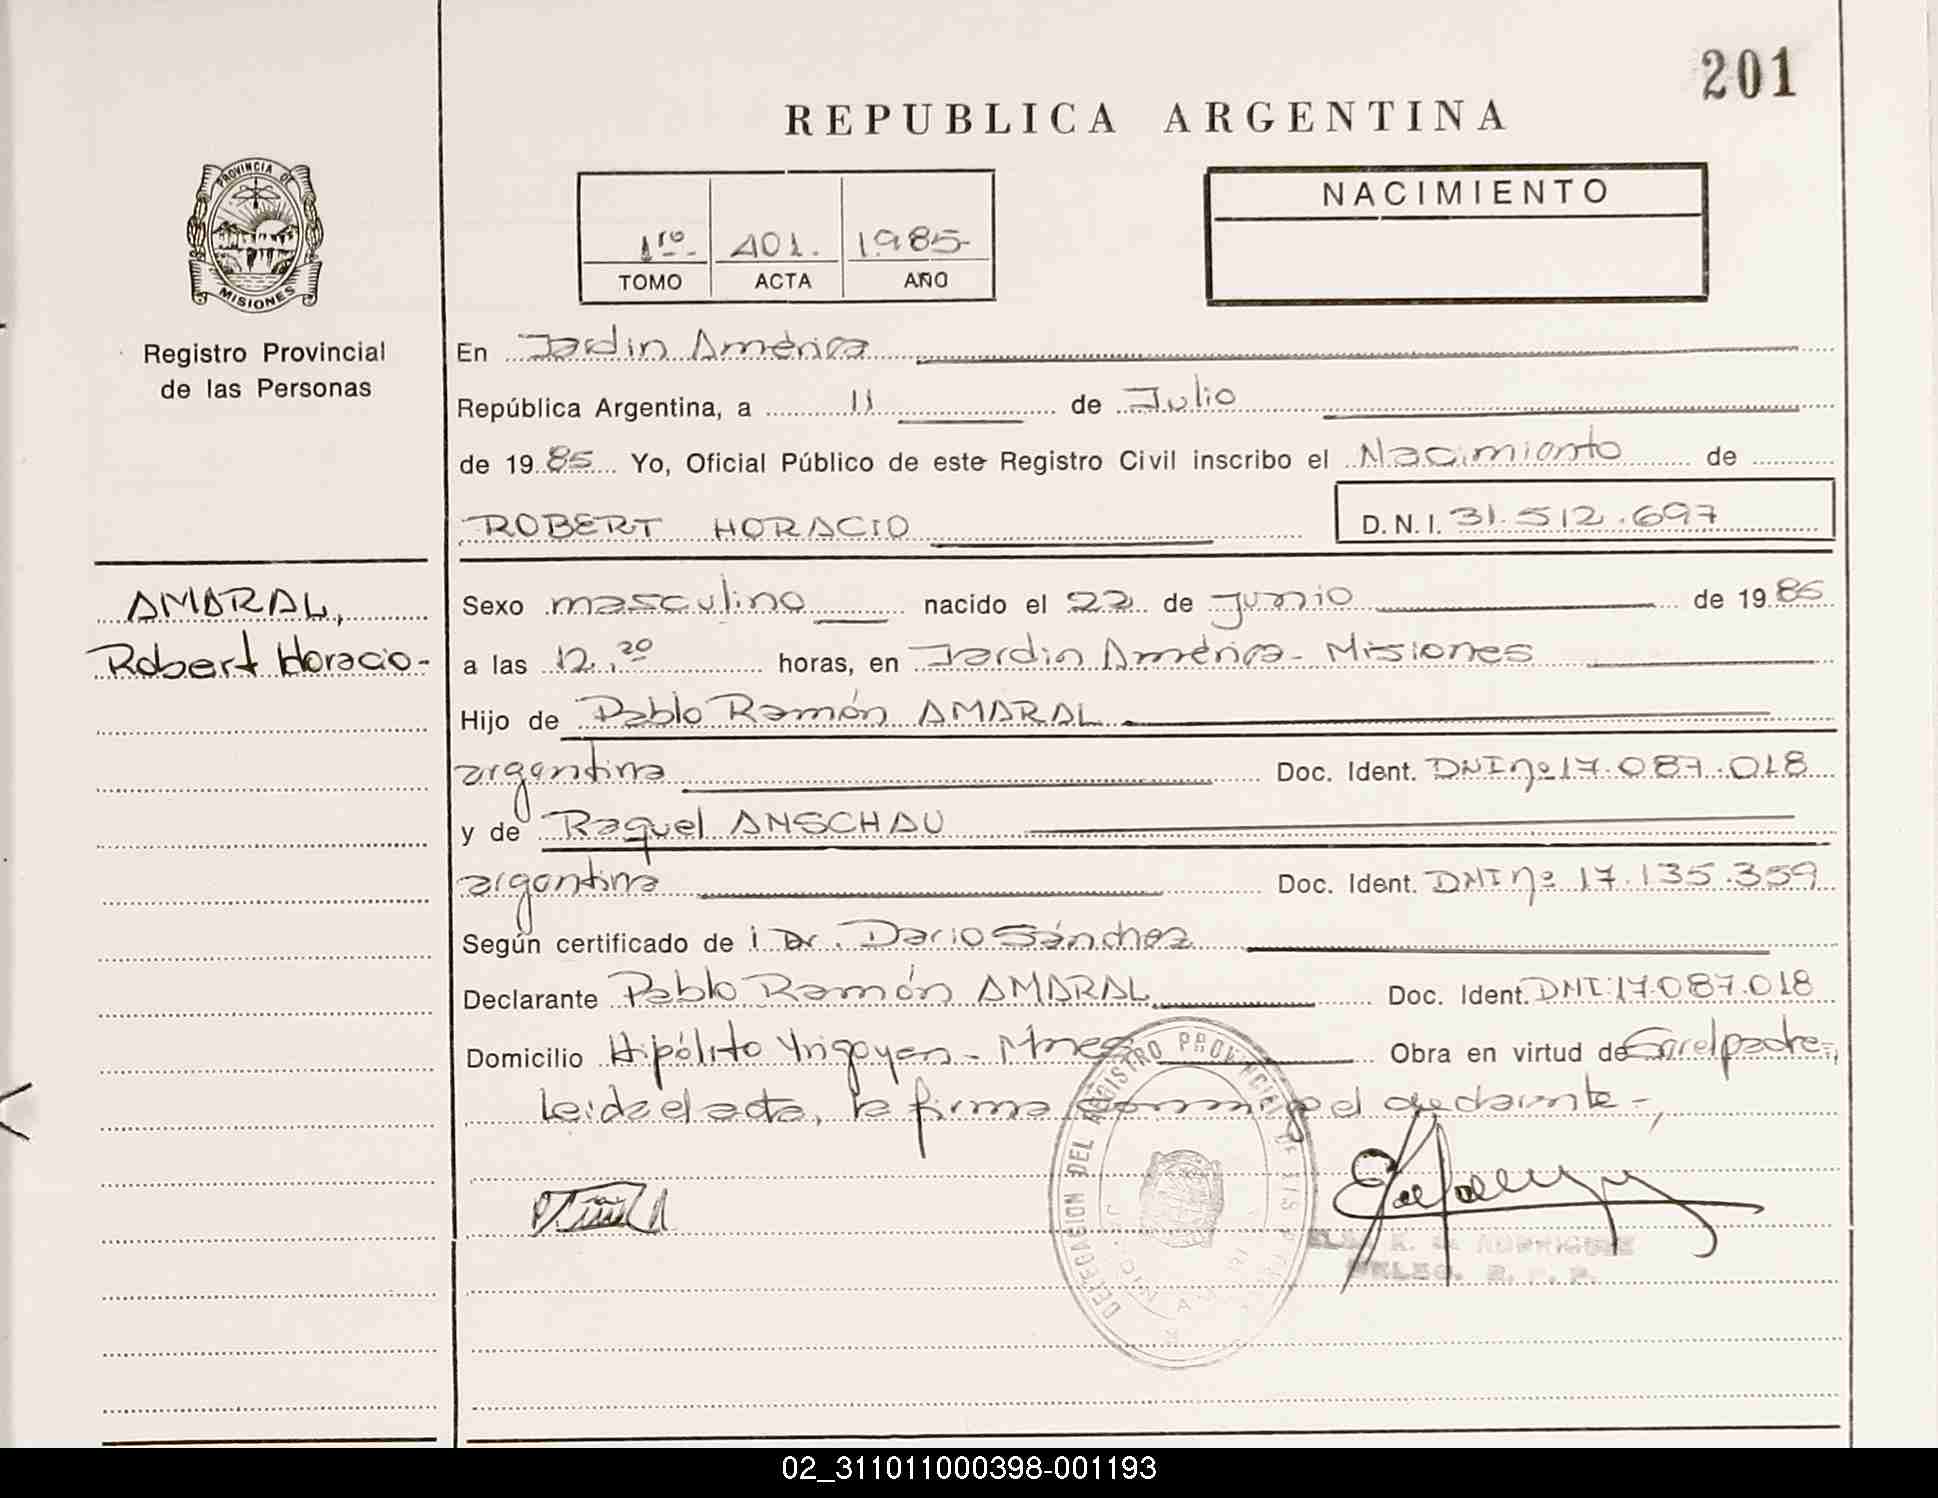 201
REPUBLICA ARGENTINA
PROVINCIA DE
MISIONES
Registro Provincial
de las Personas
NACIMIENTO
1ro. 401. 1985-
TOMO ACTA AÑO
En Jardín América
República Argentina, a 11 de Julio
de 1985 Yo, Oficial Público de este Registro Civil inscribo el Nacimiento de
ROBERT HORACIO D.N.I. 31.512.697
AMARAL,
Robert Horacio-
Sexo masculino nacido el 22 de junio de 1985
a las 12,20 horas, en Jardín América- Misiones
Hijo de Pablo Ramón AMARAL
argentina Doc. Ident. DNI nº 17.087.018
y de Raquel ANSCHAU
argentina Doc. Ident. DNI nº 17.135.359
Según certificado de Dr. Dario Sánchez
Declarante Pablo Ramón AMARAL Doc. Ident. DNI:17.087.018
Domicilio Hipólito Yrigoyen - Mnes Obra en virtud de Ser el padre-,
Leida el acta, la firma conmigo el declarante-,
DELEGACION DEL REGISTRO PROVINCIAL DE
DELEG. R. P. P.
02_311011000398-001193